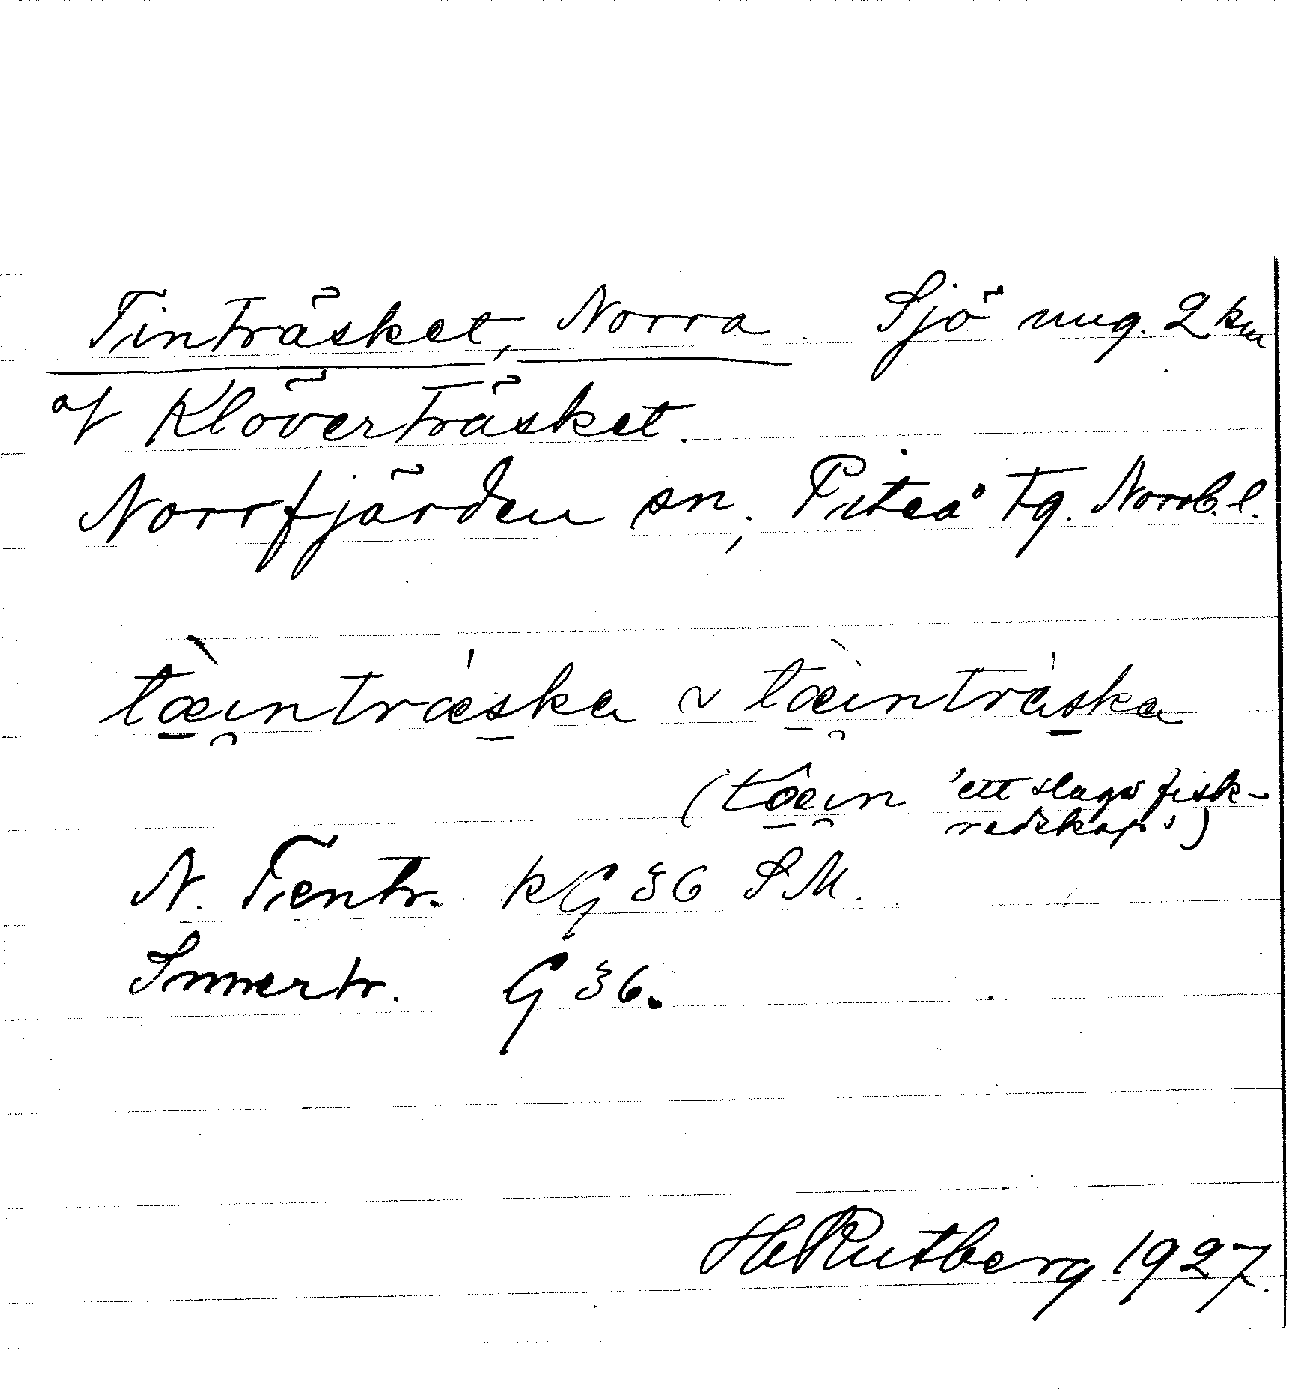 Tinträsket, Norra Sjö ung. 2 km
af Klöverträsket.
Norrfjärden sn, Piteå Tg. Norrb. l.
tæ̀i̯ntræ̍ska ~ tæ̀i̯nträ̍ska
(tæ̂i̯n 'ett slags fisk-
redskap')
N. Tientr. kG 36 SM.
Innertr. G 36.
HRutberg 1927.